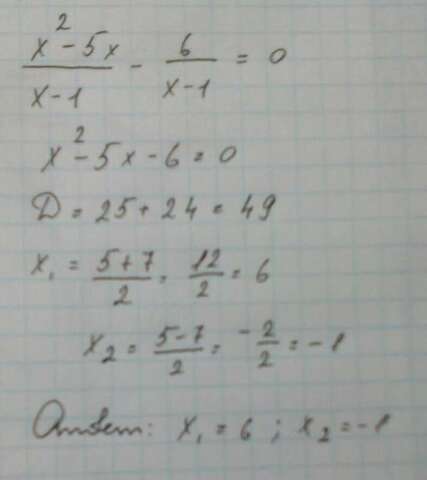 (x² - 5x)/(x - 1) - 6/(x - 1) = 0
x² - 5x - 6 = 0
D = 25 + 24 = 49
x₁ = (5 + 7)/2 = 12/2 = 6
x₂ = (5 - 7)/2 = -2/2 = -1
Ответ: x₁ = 6 ; x₂ = -1